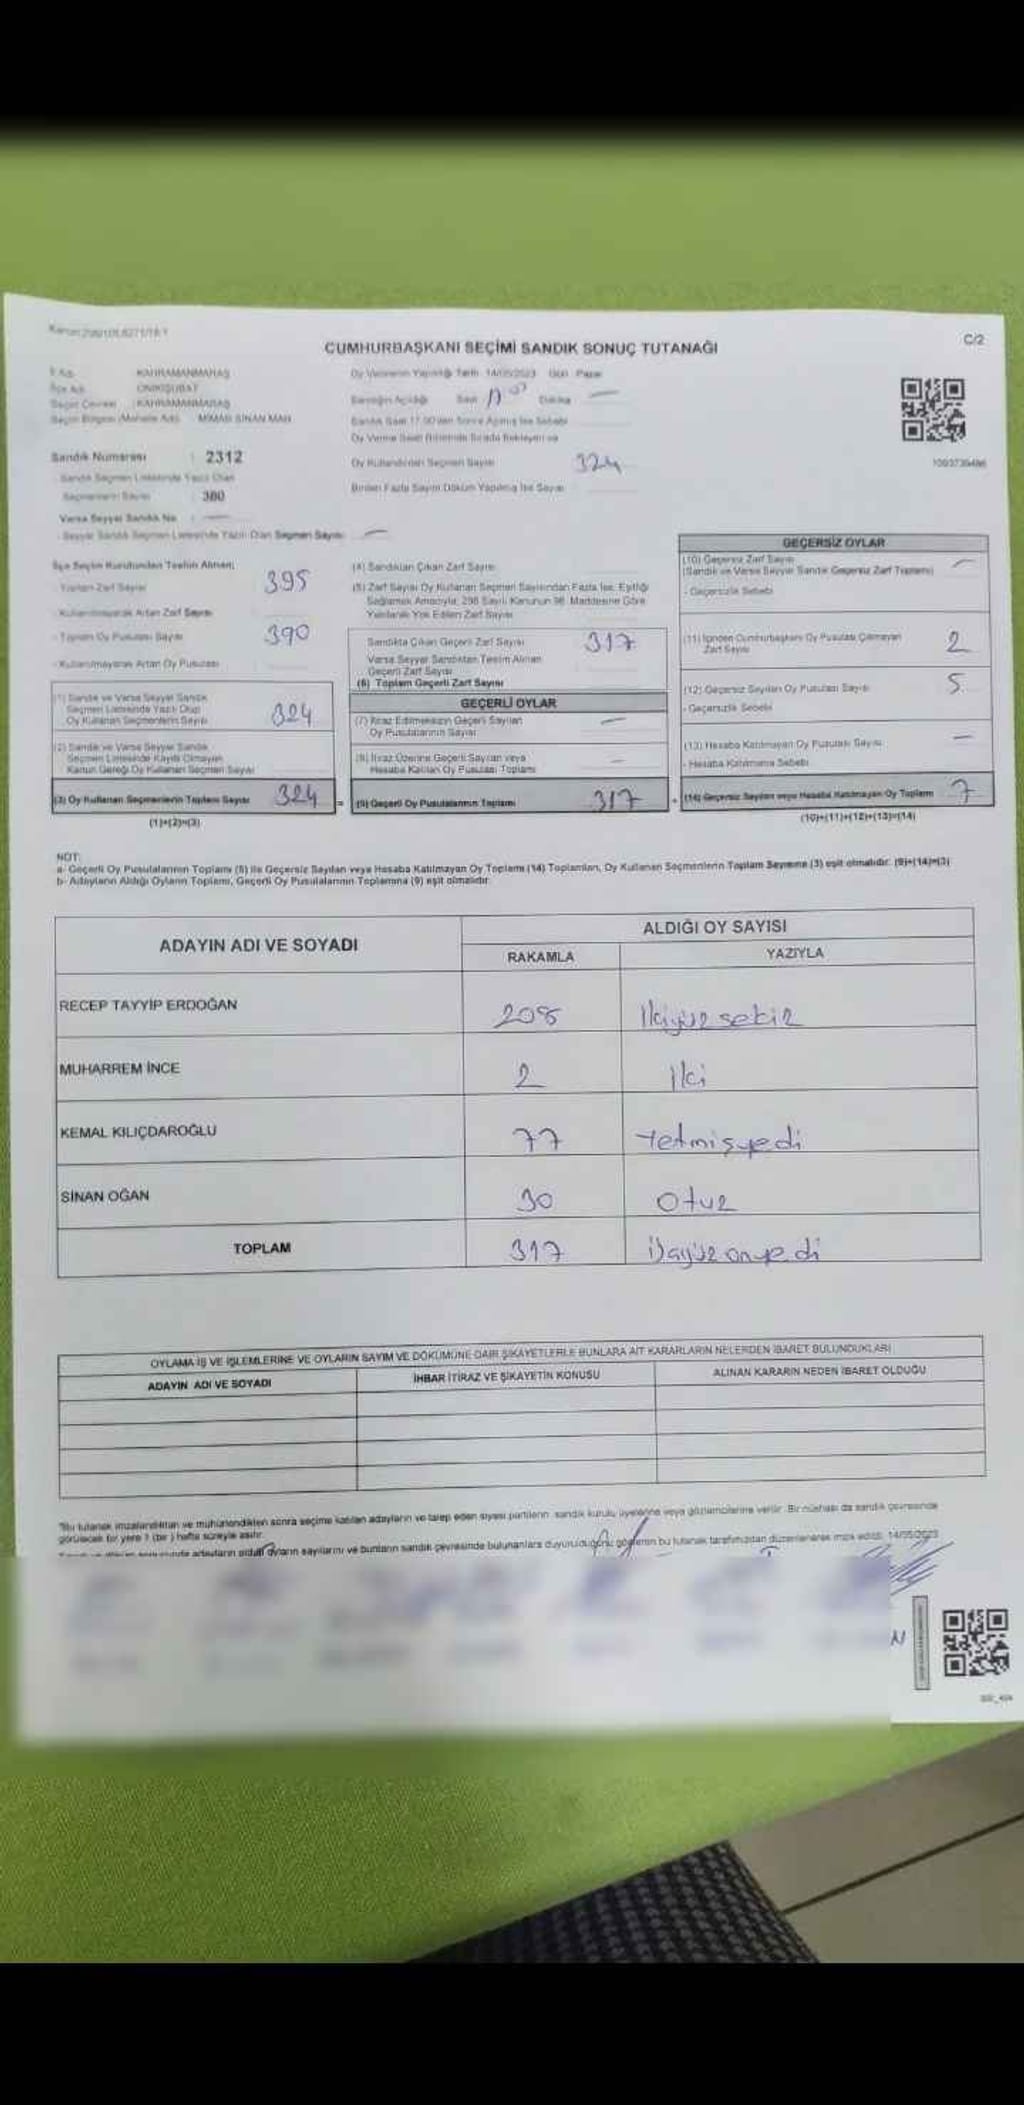 C/2
CUMHURBAŞKANI SEÇİMİ SANDIK SONUÇ TUTANAĞI
İl Adı : KAHRAMANMARAŞ
İlçe Adı : ONİKİŞUBAT
Seçim Çevresi : KAHRAMANMARAŞ
Seçim Bölgesi (Mahalle Adı) : MİMAR SİNAN MAH
Sandık Numarası : 2312
Sandık Seçmen Listesinde Yazılı Olan
Seçmenlerin Sayısı : 380
Varsa Seyyar Sandık No : —
- Seyyar Sandık Seçmen Listesinde Yazılı Olan Seçmen Sayısı —
Oy Vermenin Yapıldığı Tarih 14/05/2023 Gün Pazar
Sandığın Açıldığı Saat Dakika —
Sandık Saat 17.00'den Sonra Açılmış İse Sebebi
Oy Verme Saati Bitiminde Sırada Bekleyen ve
Oy Kullandırılan Seçmen Sayısı 324
Birden Fazla Sayım Döküm Yapılmış İse Sayısı
1003739486
İlçe Seçim Kurulundan Teslim Alınan;
- Toplam Zarf Sayısı 395
- Kullanılmayarak Artan Zarf Sayısı
- Toplam Oy Pusulası Sayısı 390
- Kullanılmayarak Artan Oy Pusulası
(1) Sandık ve Varsa Seyyar Sandık
Seçmen Listesinde Yazılı Olup
Oy Kullanan Seçmenlerin Sayısı 324
(2) Sandık ve Varsa Seyyar Sandık
Seçmen Listesinde Kayıtlı Olmayan
Kanun Gereği Oy Kullanan Seçmen Sayısı
(3) Oy Kullanan Seçmenlerin Toplam Sayısı 324 =
(1)+(2)=(3)
(4) Sandıktan Çıkan Zarf Sayısı
(5) Zarf Sayısı Oy Kullanan Seçmen Sayısından Fazla İse, Eşitliği
Sağlamak Amacıyla, 298 Sayılı Kanunun 98. Maddesine Göre
Yakılarak Yok Edilen Zarf Sayısı
Sandıkta Çıkan Geçerli Zarf Sayısı 317
Varsa Seyyar Sandıktan Teslim Alınan
Geçerli Zarf Sayısı
(6) Toplam Geçerli Zarf Sayısı
GEÇERLİ OYLAR
(7) İtiraz Edilmeksizin Geçerli Sayılan
Oy Pusulalarının Sayısı —
(8) İtiraz Üzerine Geçerli Sayılan veya
Hesaba Katılan Oy Pusulası Toplamı —
(9) Geçerli Oy Pusulalarının Toplamı 317 +
GEÇERSİZ OYLAR
(10) Geçersiz Zarf Sayısı
(Sandık ve Varsa Seyyar Sandık Geçersiz Zarf Toplamı) —
- Geçersizlik Sebebi
(11) İçinden Cumhurbaşkanı Oy Pusulası Çıkmayan
Zarf Sayısı 2
(12) Geçersiz Sayılan Oy Pusulası Sayısı 5
- Geçersizlik Sebebi
(13) Hesaba Katılmayan Oy Pusulası Sayısı —
- Hesaba Katılmama Sebebi
(14) Geçersiz Sayılan veya Hesaba Katılmayan Oy Toplamı 7
(10)+(11)+(12)+(13)=(14)
NOT:
a- Geçerli Oy Pusulalarının Toplamı (9) ile Geçersiz Sayılan veya Hesaba Katılmayan Oy Toplamı (14) Toplamları, Oy Kullanan Seçmenlerin Toplam Sayısına (3) eşit olmalıdır. (9)+(14)=(3)
b- Adayların Aldığı Oyların Toplamı, Geçerli Oy Pusulalarının Toplamına (9) eşit olmalıdır.
ADAYIN ADI VE SOYADI ALDIĞI OY SAYISI
RAKAMLA YAZIYLA
RECEP TAYYİP ERDOĞAN 208 İkiyüz sekiz
MUHARREM İNCE 2 İki
KEMAL KILIÇDAROĞLU 77 Yetmişyedi
SİNAN OĞAN 30 Otuz
TOPLAM 317 üçyüz onyedi
OYLAMA İŞ VE İŞLEMLERİNE VE OYLARIN SAYIM VE DÖKÜMÜNE DAİR ŞİKAYETLERLE BUNLARA AİT KARARLARIN NELERDEN İBARET BULUNDUKLARI
ADAYIN ADI VE SOYADI İHBAR İTİRAZ VE ŞİKAYETİN KONUSU ALINAN KARARIN NEDEN İBARET OLDUĞU
*Bu tutanak imzalandıktan ve mühürlendikten sonra seçime katılan adayların ve talep eden siyasi partilerin sandık kurulu üyelerine veya gözlemcilerine verilir. Bir nüshası da sandık çevresinde
görülecek bir yere 1 (bir) hafta süreyle asılır.
adayların aldığı oyların sayılarını ve bunların sandık çevresinde bulunanlara duyurulduğunu gösteren bu tutanak tarafımızdan düzenlenerek imza edildi. 14/05/2023